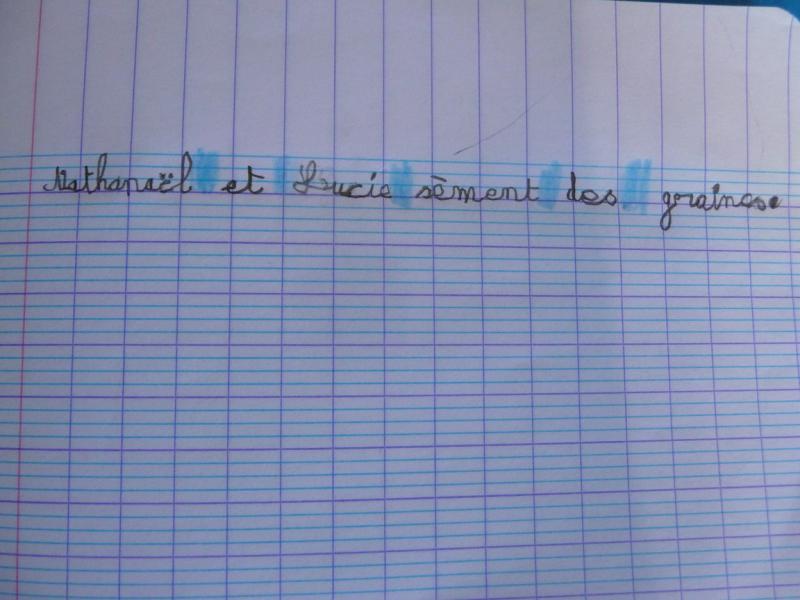 Nathanaël et Lucie sèment des graines.